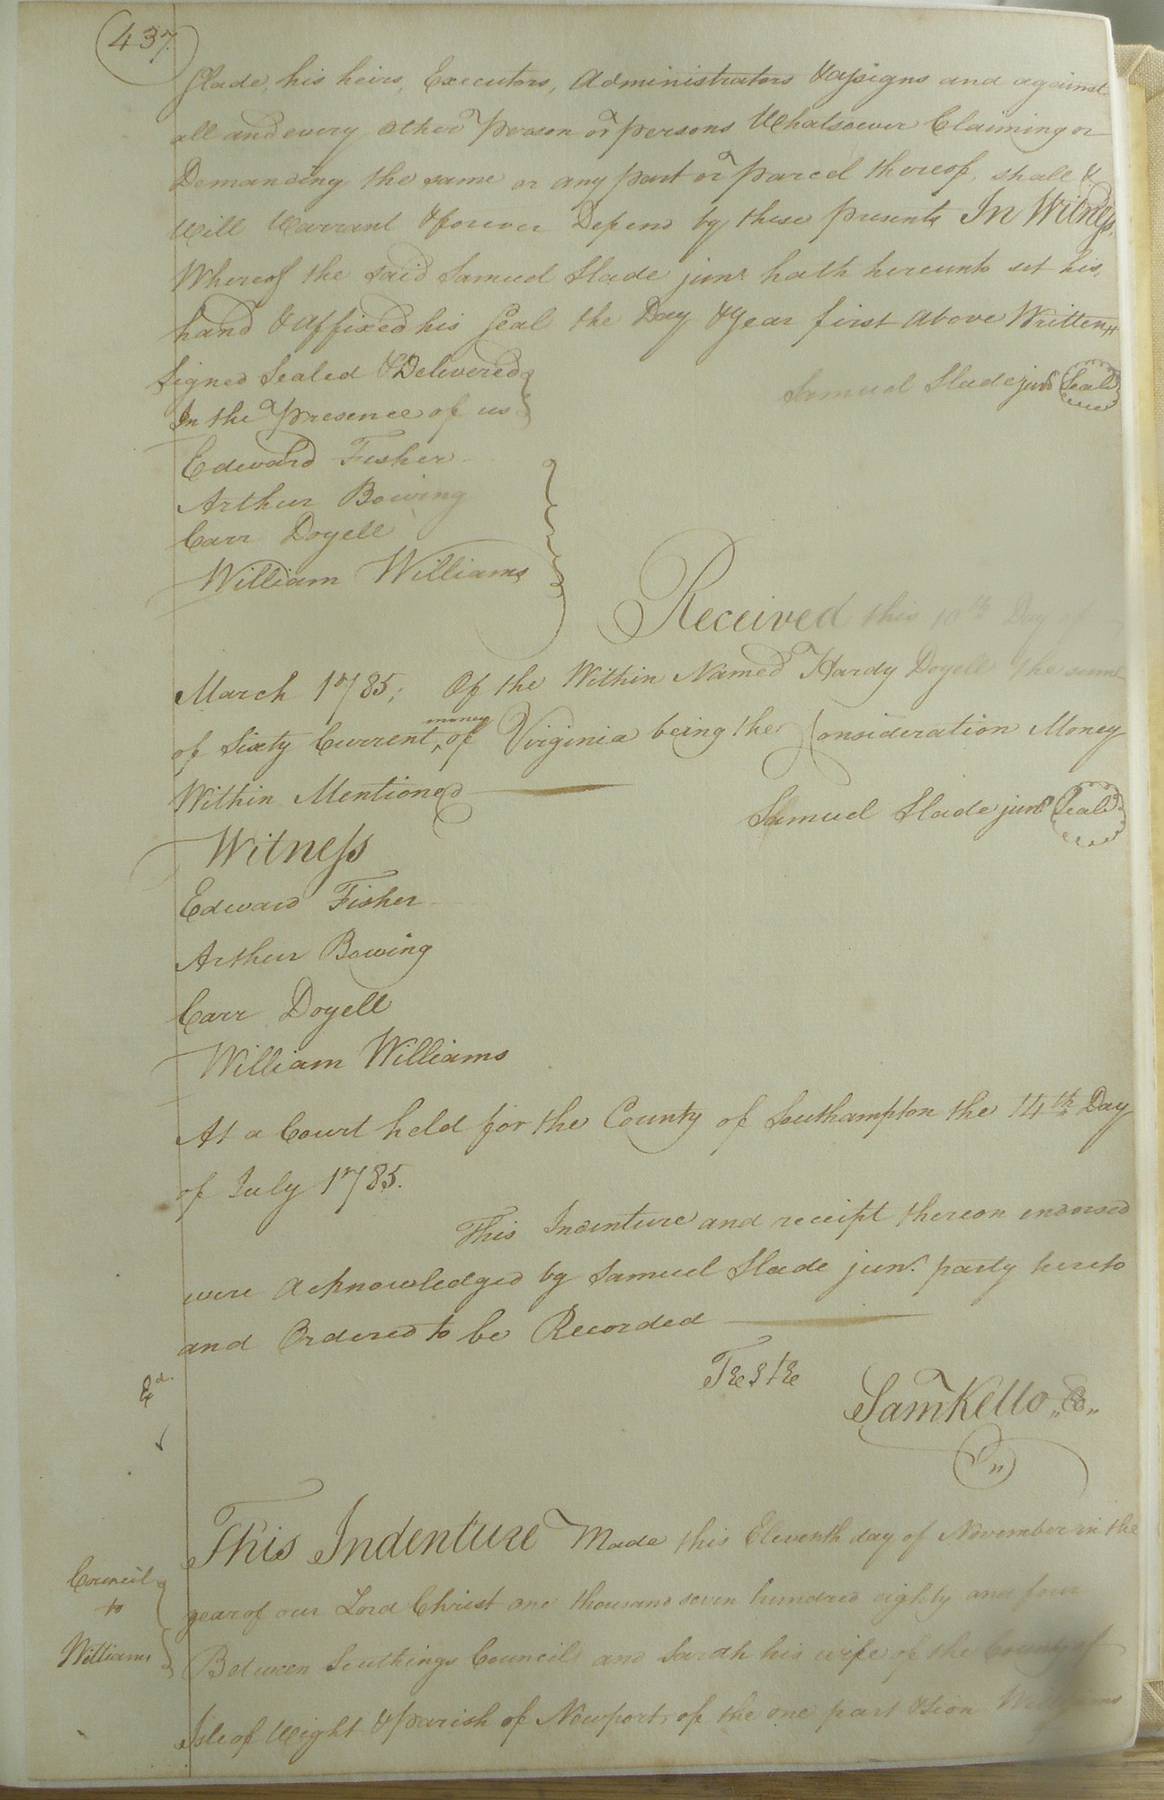 437.
Slade, his heirs, Executors, Administrators & assigns and against
all and every other person or persons Whatsoever Claiming or
Demanding the same or any part or parcel thereof, shall &
Will Warrant & forever Defend by these presents In Witness
Whereof the said Samuel Slade junr. hath hereunto set his
hand & affixed his Seal the Day & Year first above Written
Signed Sealed & Delivered
In the presence of us
Samuel Slade junr Seal
Edward Fisher
Arthur Bowing
Carr Doyell
William Williams
Received this 10th Day of
March 1785; Of the Within Named Hardy Doyell the sum
of Sixty Current money of Virginia being the Consideration Money
Within Mentioned
Samuel Slade junr Seal
Witness
Edward Fisher
Arthur Bowing
Carr Doyell
William Williams
At a Court held for the County of Southampton the 14th Day
of July 1785.
This Indenture and receipt thereon endorsed
were Acknowledged by Samuel Slade junr. party hereto
and Ordered to be Recorded
Teste
Saml Kello
Exd.
This Indenture Made this Eleventh day of November in the
year of our Lord Christ one thousand seven hundred eighty and four
Council
to
Williams
Between Scuthings Council and Sarah his wife of the County of
Isle of Wight & parish of Newport, of the one part & Sion Williams